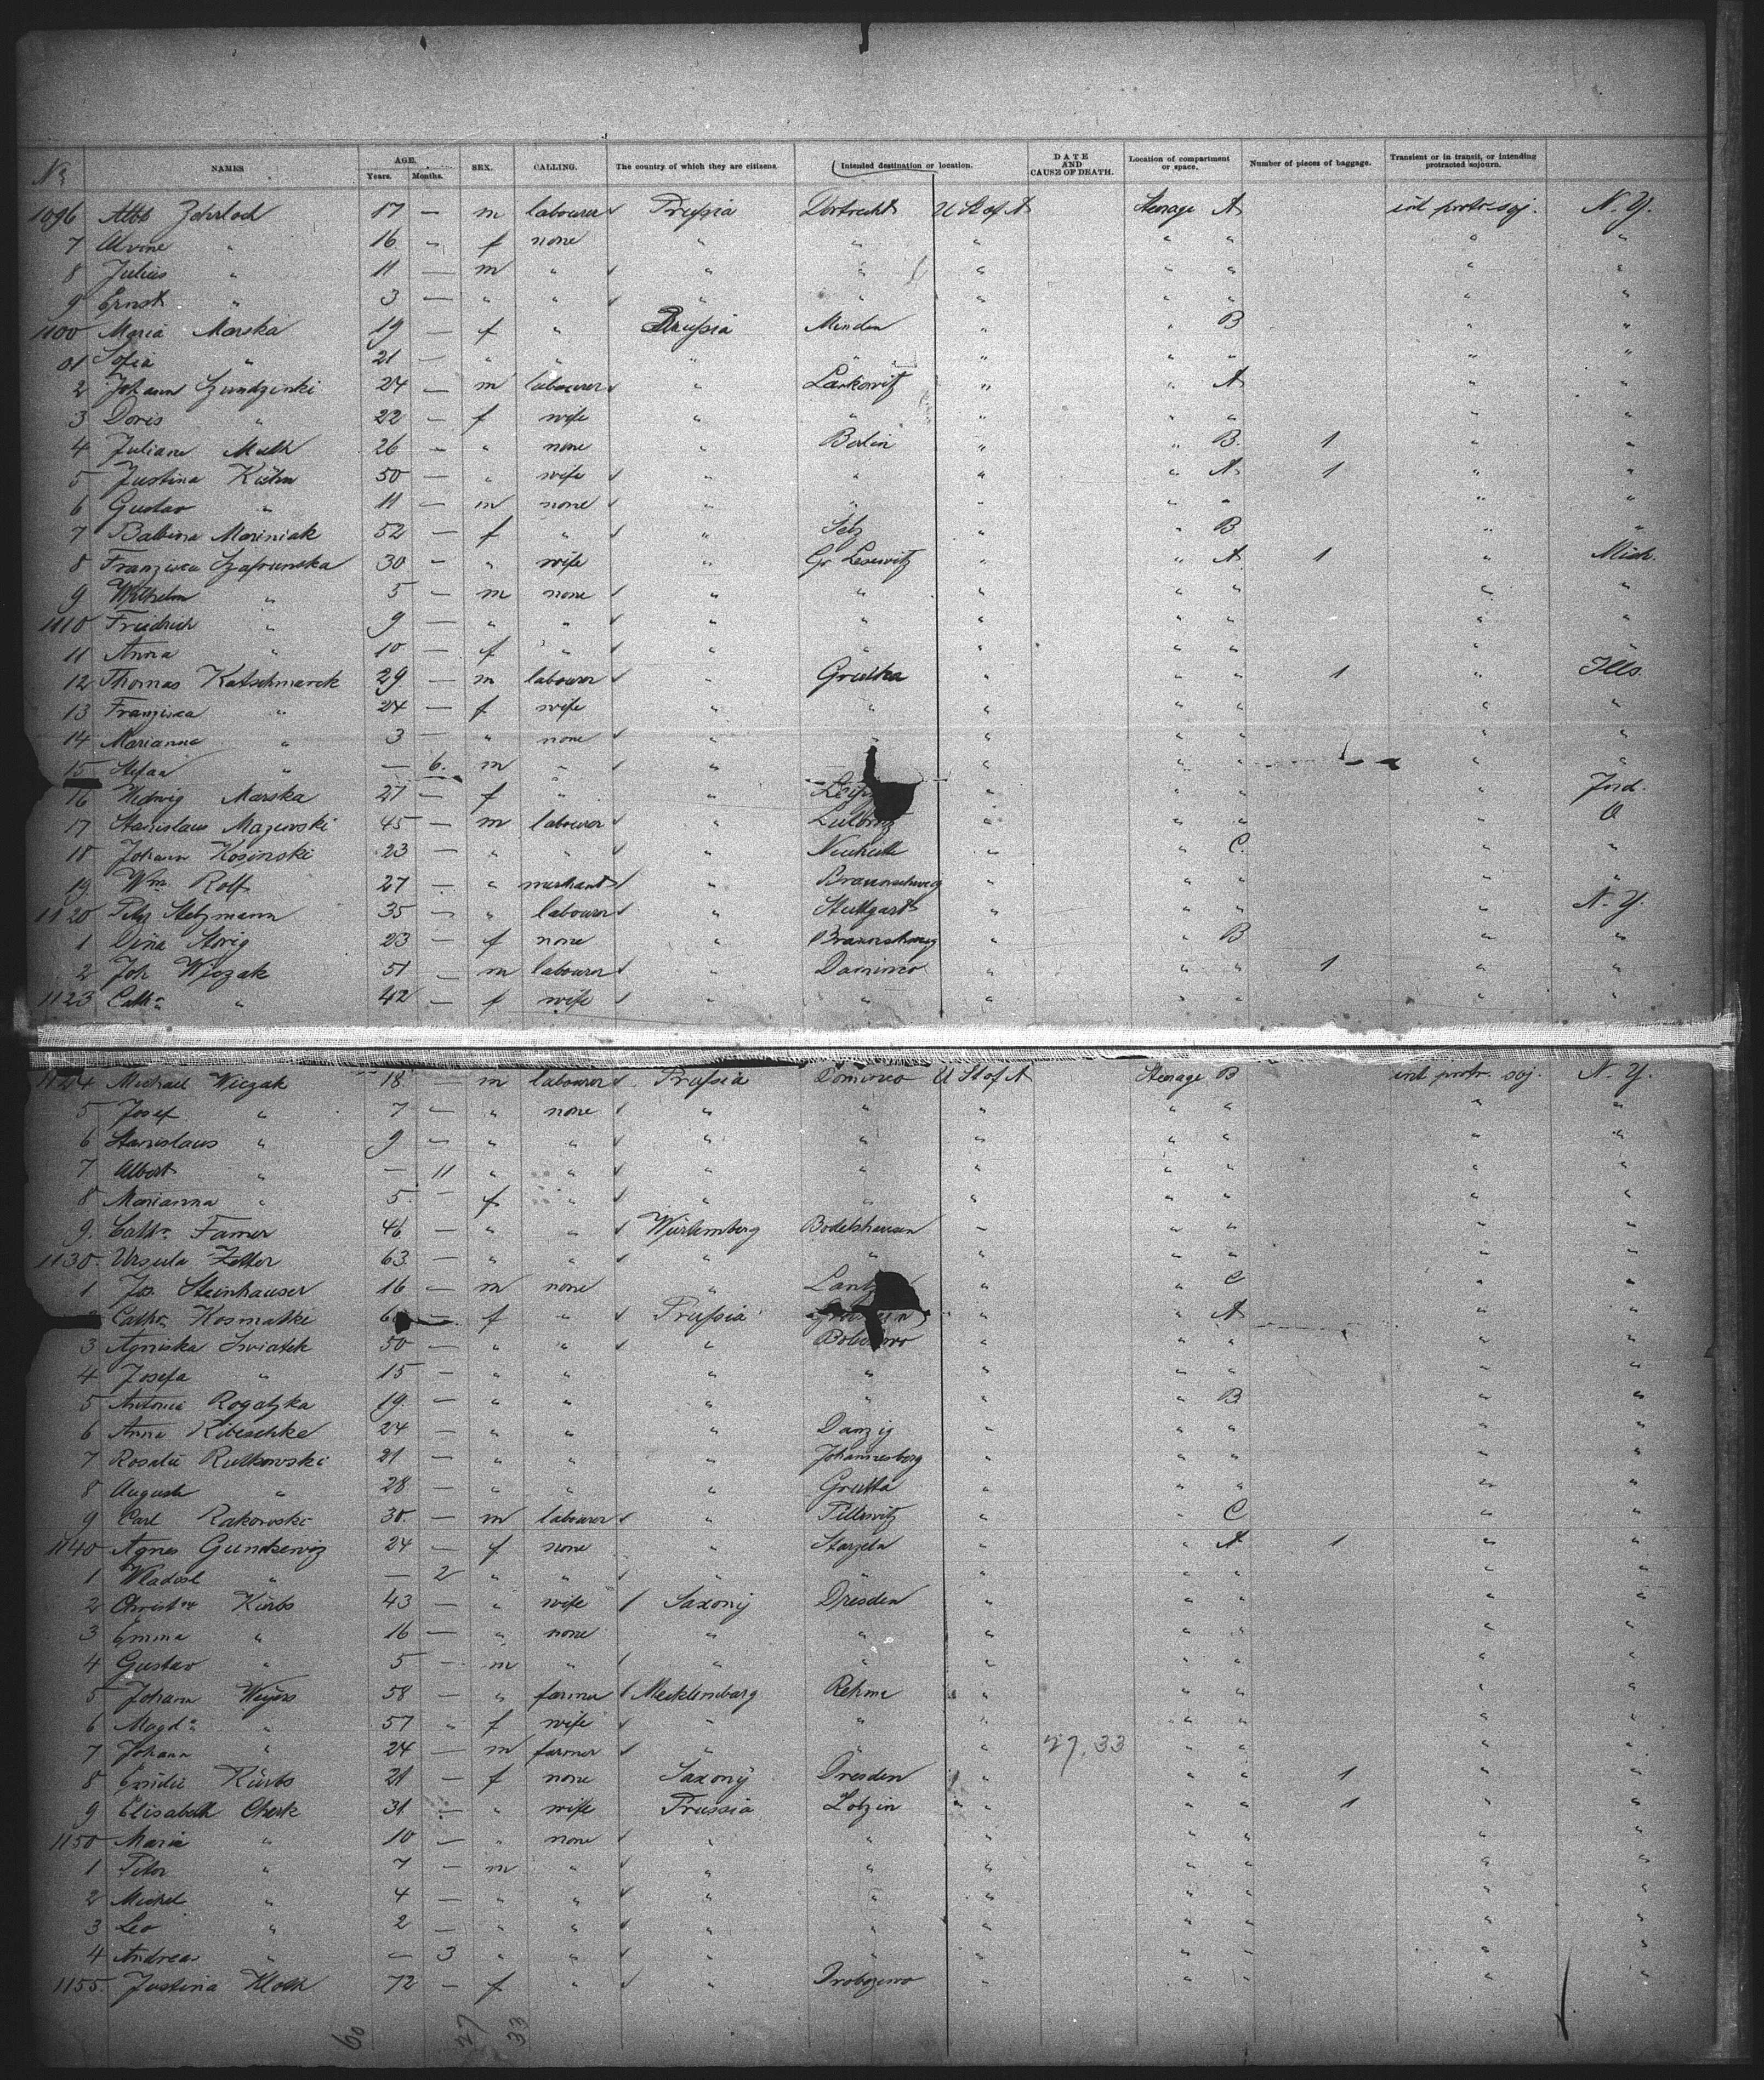 No NAMES AGE. Years. Months. SEX. CALLING. The country of which they are citizens Intended destination or location. DATE AND CAUSE OF DEATH. Location of compartment or space. Number of pieces of baggage. Transient or in transit, or intending protracted sojourn.
1096 Albt Zehrlach 17 — m labourer Prussia Dortrecht U St of A Steerage A int protr soj. N. Y.
7 Alvine " 16 " f none " " " " " " "
8 Julius " 11 — m " " " " " " " "
9 Ernst " 3 — " " " " " " " " "
1100 Maria Marska 19 — f " Prussia Minden " " B " "
01 Sofia " 21 — " " " " " " " " "
2 Johann Szundzinski 24 — m labourer " Laskowitz " " A " "
3 Doris " 22 — f wife " " " " " " "
4 Juliane Muth 26 — " none " Berlin " " B. 1 " "
5 Justina Kühn 50 — " wife " " " " A 1 " "
6 Gustav " 11 — m none " " " " " " "
7 Balbina Mariniak 52 — f " " Selz " " B " "
8 Franziska Szafranska 30 — " wife " Gr Lesewitz " " A 1 " Mich.
9 Wilhelm " 5 — m none " " " " " " "
1110 Friedrich " 9 — " " " " " " " " "
11 Anna " 10 — f " " " " " " " "
12 Thomas Katschmarek 29 — m labourer " Grutka " " " 1 " Ills.
13 Franziska " 24 — f wife " " " " " " "
14 Marianna " 3 — " none " " " " " " "
15 Stefan " — 6. m " " " " " " "
16 Hedwig Marska 27 — f " " " " " " Ind.
17 Stanislaus Majewski 45 — m labourer " " " " " O
18 Johann Kosinski 23 — " " " " " C. " "
19 Wm Rolf 27 — " merchant " Braunschweig " " " "
1120 Petr Stelzmann 35 — " labourer " Stuttgart " " " N. Y.
1 Dina Storig 23 — f none " Braunschweig " " B " "
2 Joh Wiczak 51 — m labourer " Dominowo " " " 1 " "
1123 Cathn " 42 — f wife " " " " " " "
1124 Michael Wiczak 18. — m labourer Prussia Dominowo U St of A Steerage B int protr. soj. N. Y.
5 Josef " 7 — " none " " " " " " "
6 Stanislaus " 9 — " " " " " " " " "
7 Albert " — 11 " " " " " " " " "
8 Marianna " 5 — f " " " " " " " "
9. Cathn Famer 46 — " " Würtemberg Bodelshausen " " " " "
1130. Ursula Zetter 63. — " " " " " " " " "
1 Jos. Steinhauser 16 — m none " " " C " "
Cathn Kosmatke — f " Prussia " " A " "
3 Agniska Swiatek 50 — " " " " " " " "
4 Josefa " 15 — " " " " " " " " "
5 Antonia Rogatzka 19. — " " " " " " B " "
6 Anna Ribeschke 24 — " " " Danzig " " " " "
7 Rosalie Rutkowski 21 — " " " Johannesberg " " " " "
8 Auguste " 28 — " " " Grutta " " " " "
9 Carl Rakowski 30. — m labourer " Pillewitz " " C " "
1140 Agnes Gunckewiz 24 — f none " Starzeln " " A 1 " "
1 Wladisl " — 2 " " " " " " " " "
2 Christne Kürbs 43 — " wife Saxony Dresden " " " " "
3 Emma " 16 — " none " " " " " " "
4 Gustav " 5 — m " " " " " " " "
5 Johann Weyers 58 — " farmer Mecklemburg Rehme " " " " "
6 Magda " 57 " f wife " " " " " " "
7 Johann " 24 — m farmer " " " 27. 33 " " " "
8 Emilie Kürbs 21 — f none Saxony Dresden " " " 1 " "
9 Elisabeth Cherk 31 — " wife Prussia Lotzin " " " 1 " "
1150 Maria " 10 — " none " " " " " " "
1 Peter " 7 — m " " " " " " " "
2 Michel " 4 — " " " " " " " " "
3 Leo " 2 — " " " " " " " " "
4 Andreas " — 3 " " " " " " " " "
1155. Justina Kloth 72 — f " " Drobozewo " " " " "
60 27 33